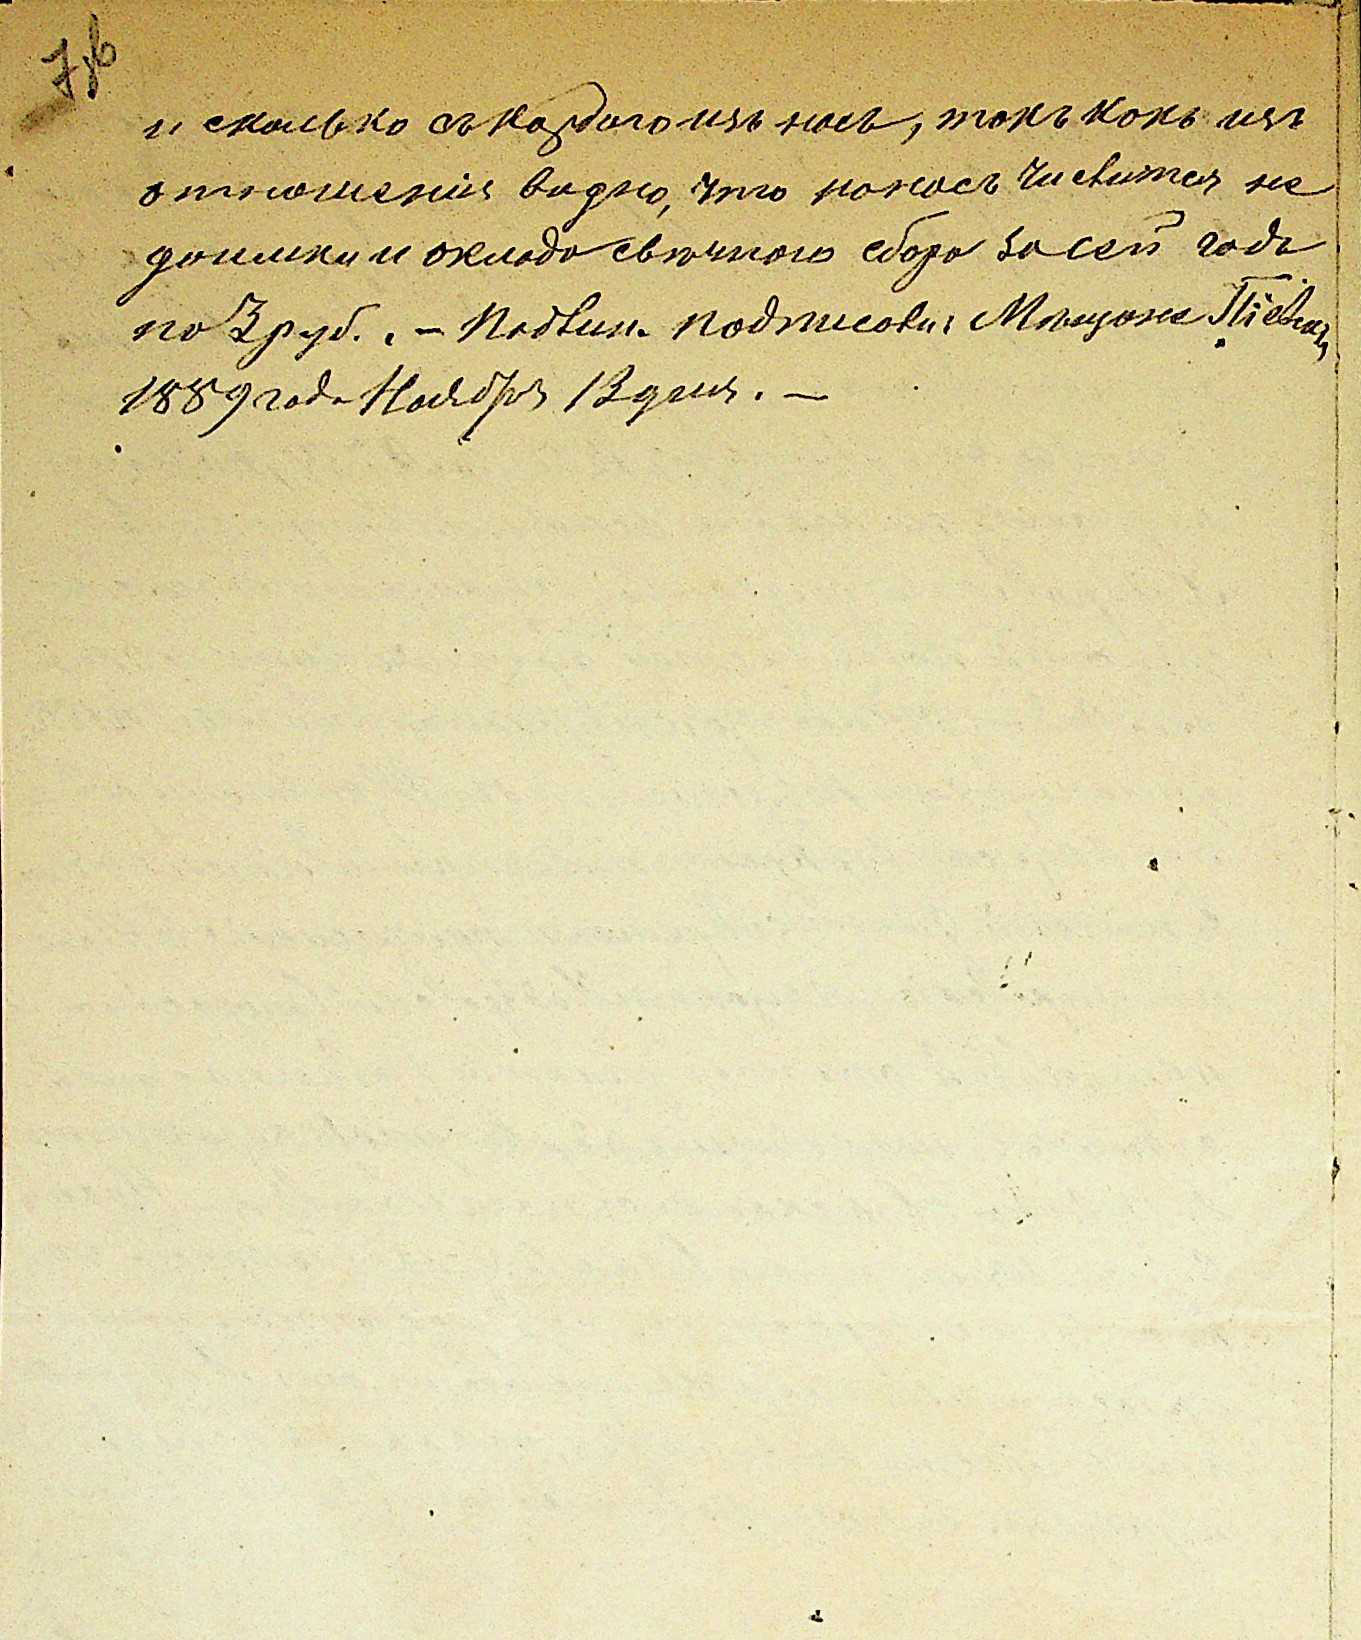 7об
и сколько съ каждаго изъ насъ, такъ какъ изъ
отношенія видно, что на насъ числится не
доимки и оклада свѣчного сбора за сей годъ
по 3 руб. . — подписовис Мѣщане
1889 года Ноября 13 дня. —